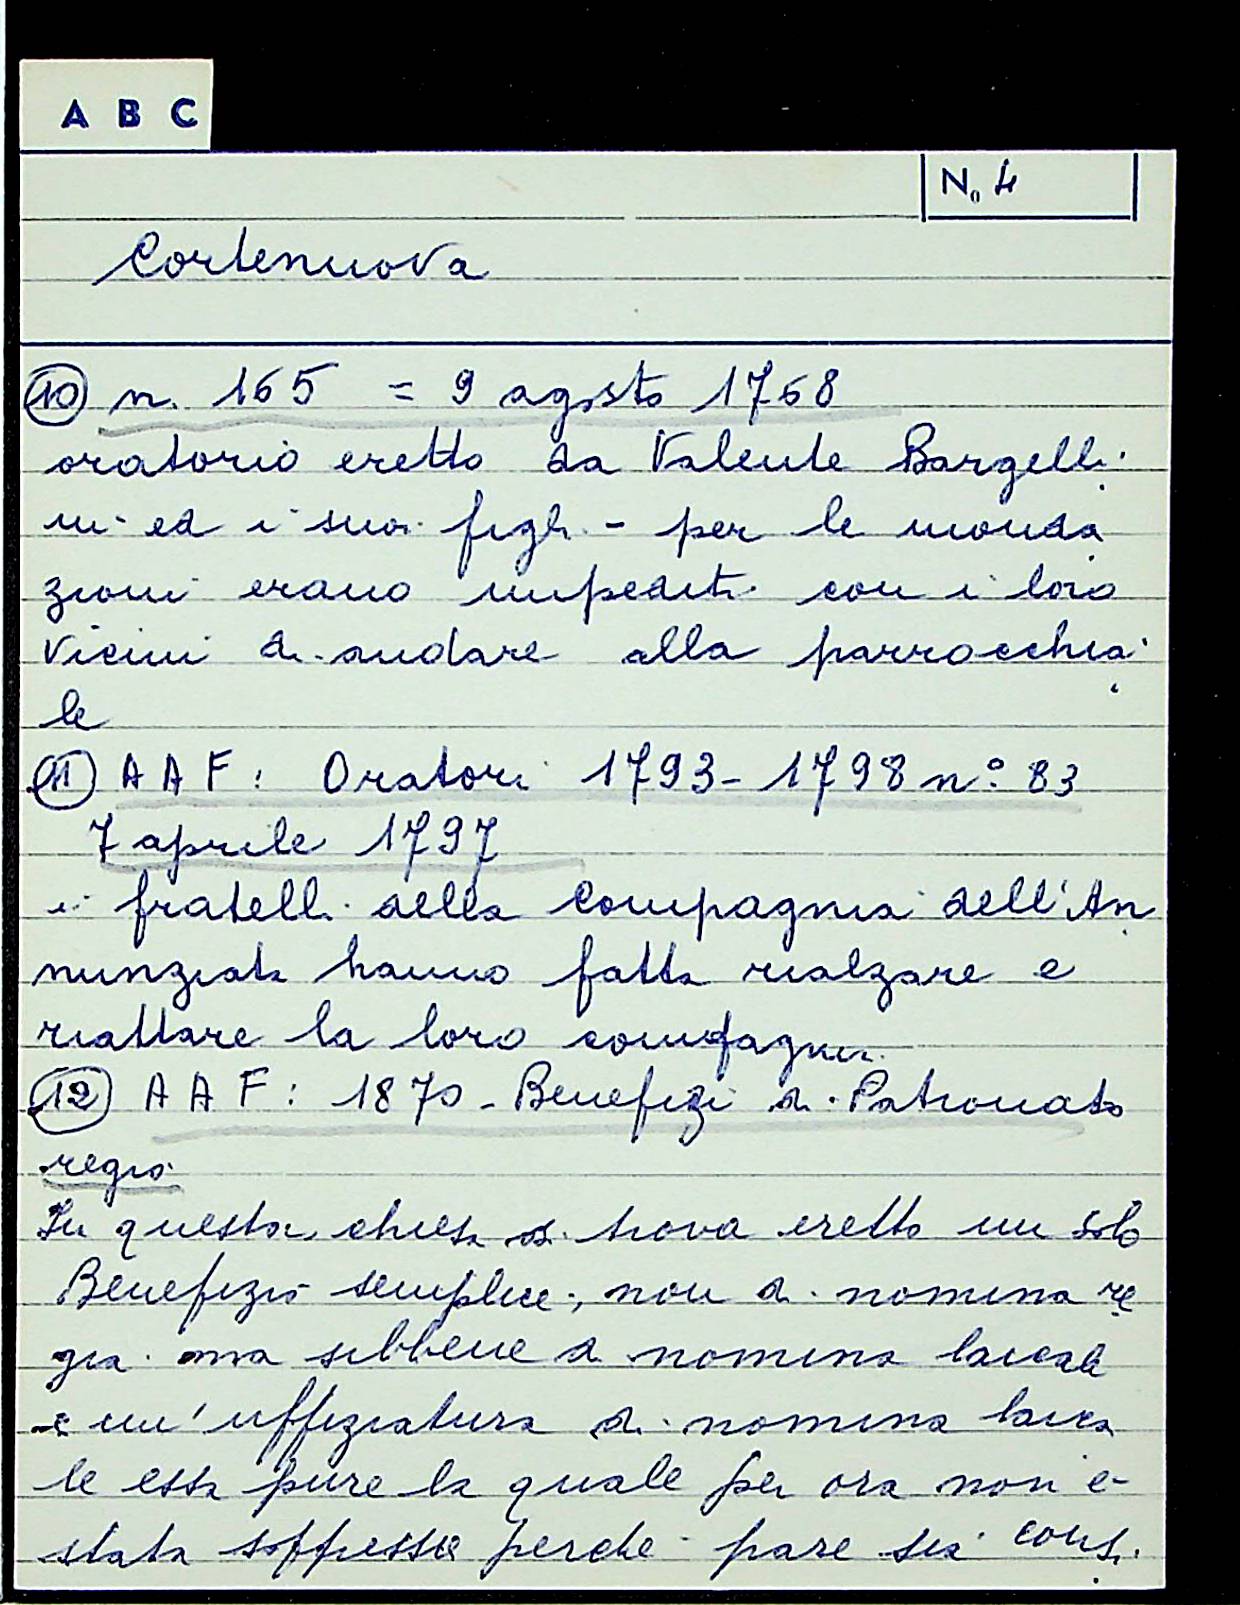 A B C
No 4
Cortenuova
10 n. 165 = 9 agosto 1768
oratorio eretto da Valente Bargelli
ni ed i suoi figli - per le inonda
zioni erano impediti con i loro
vicini di andare alla parrocchia
le
11 AAF: Oratori 1793-1798 n° 83
7 aprile 1797
i fratelli della Compagnia dell'An
nunziata hanno fatto rialzare e
riattare la loro compagnia
12 AAF: 1870 - Benefizi di Patronato
regio
In questa chiesa si trova eretto un solo
Benefizio semplice, non di nomina re
gia ma sibbene di nomina laicale
e un'uffiziatura di nomina laica
le essa pure la quale per ora non è
stata soppressa perché pare sia consi